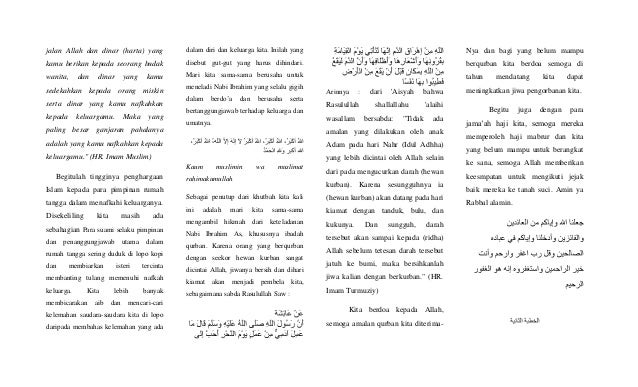 jalan Allah dan dinar (harta) yang
kamu berikan kepada seorang budak
wanita, dan dinar yang kamu
sedekahkan kepada orang miskin
serta dinar yang kamu nafkahkan
kepada keluargamu. Maka yang
paling besar ganjaran pahalanya
adalah yang kamu nafkahkan kepada
keluargamu." (HR. Imam Muslim)
Begitulah tingginya penghargaan
Islam kepada para pimpinan rumah
tangga dalam menafkahi keluarganya.
Disekeliling kita masih ada
sebahagian Para suami selaku pimpinan
dan penanggungjawab utama dalam
rumah tangga sering duduk di lopo kopi
dan membiarkan isteri tercinta
membanting tulang memenuhi nafkah
keluarga. Kita lebih banyak
membicarakan aib dan mencari-cari
kelemahan saudara-saudara kita di lopo
daripada membahas kelemahan yang ada
dalam diri dan keluarga kita. Inilah yang
disebut gut-gut yang harus dihindari.
Mari kita sama-sama berusaha untuk
meneladi Nabi Ibrahim yang selalu gigih
dalam berdo'a dan berusaha serta
bertanggungjawab terhadap keluarga dan
umatnya.
اللهُ أَكْبَرُ، اللهُ أَكْبَرُ، اللهُ أَكْبَرُ لَا إِلَهَ إِلَّا اللهُ، اللهُ أَكْبَرُ،
اللهُ أَكْبَرُ وَلِلَّهِ الْحَمْدُ
Kaum muslimin wa muslimat
rahimakumullah
Sebagai penutup dari khutbah kita kali
ini adalah mari kita sama-sama
mengambil hikmah dari keteladanan
Nabi Ibrahim As, khususnya ibadah
qurban. Karena orang yang berqurban
dengan seekor hewan kurban sangat
dicintai Allah, jiwanya bersih dan dihari
kiamat akan menjadi pembela kita,
sebagaimana sabda Rasulullah Saw :
عَنْ عَائِشَةَ
أَنَّ رَسُولَ اللَّهِ صَلَّى اللَّهُ عَلَيْهِ وَسَلَّمَ قَالَ مَا
عَمِلَ آدَمِيٌّ مِنْ عَمَلٍ يَوْمَ النَّحْرِ أَحَبَّ إِلَى
اللَّهِ مِنْ إِهْرَاقِ الدَّمِ إِنَّهَا لَتَأْتِي يَوْمَ الْقِيَامَةِ
بِقُرُونِهَا وَأَشْعَارِهَا وَأَظْلَافِهَا وَأَنَّ الدَّمَ لَيَقَعُ
مِنَ اللَّهِ بِمَكَانٍ قَبْلَ أَنْ يَقَعَ مِنَ الْأَرْضِ
فَطِيبُوا بِهَا نَفْسًا
Artinya : dari 'Aisyah bahwa
Rasulullah shallallahu 'alaihi
wasallam bersabda: "Tidak ada
amalan yang dilakukan oleh anak
Adam pada hari Nahr (Idul Adhha)
yang lebih dicintai oleh Allah selain
dari pada mengucurkan darah (hewan
kurban). Karena sesungguhnya ia
(hewan kurban) akan datang pada hari
kiamat dengan tanduk, bulu, dan
kukunya. Dan sungguh, darah
tersebut akan sampai kepada (ridha)
Allah sebelum tetesan darah tersebut
jatuh ke bumi, maka bersihkanlah
jiwa kalian dengan berkurban." (HR.
Imam Turmuziy)
Kita berdoa kepada Allah,
semoga amalan qurban kita diterima-
Nya dan bagi yang belum mampu
berqurban kita berdoa semoga di
tahun mendatang kita dapat
meningkatkan jiwa pengorbanan kita.
Begitu juga dengan para
jama'ah haji kita, semoga mereka
memperoleh haji mabrur dan kita
yang belum mampu untuk berangkat
ke sana, semoga Allah memberikan
keesmpatan untuk mengikuti jejak
baik mereka ke tanah suci. Amin ya
Rabbal alamin.
جعلنا الله وإياكم من العائدين
والفائزين وأدخلنا وإياكم في عباده
الصالحين وقل رب اغفر وارحم وأنت
خير الراحمين واستغفروه إنه هو الغفور
الرحيم
الخطبة الثانية